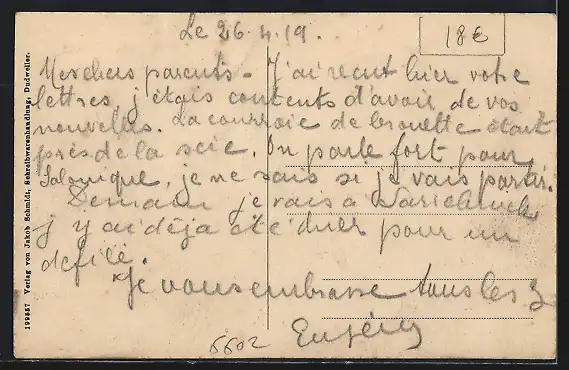 Le 26.4.19.
18€
Mes chers parents. J'ai recut hier votre
lettres, j'étais contents d'avoir de vos
nouvelles. La courroie de brouette était
près de la scie. On parle fort pour
Salonique, je ne sais si je vais partir.
Demain je vais à
j'y ai déjà été hier pour un
défilé.
Je vous embrasse tous les 3
6602
199557 Verlag von Jakob Schmidt, Schreibwarenhandlung, Dudweiler.